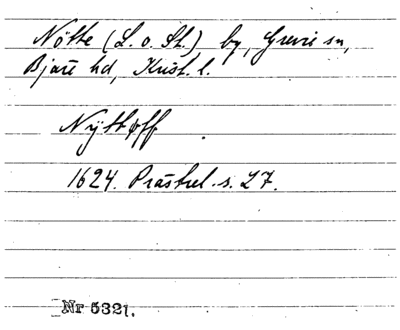 Nötte (L. o. St.) by, Grevie sn,
Bjäre hd, Krist. l.
Nÿttoff
1624. Prästrel. s. 27.
Nr 5321.